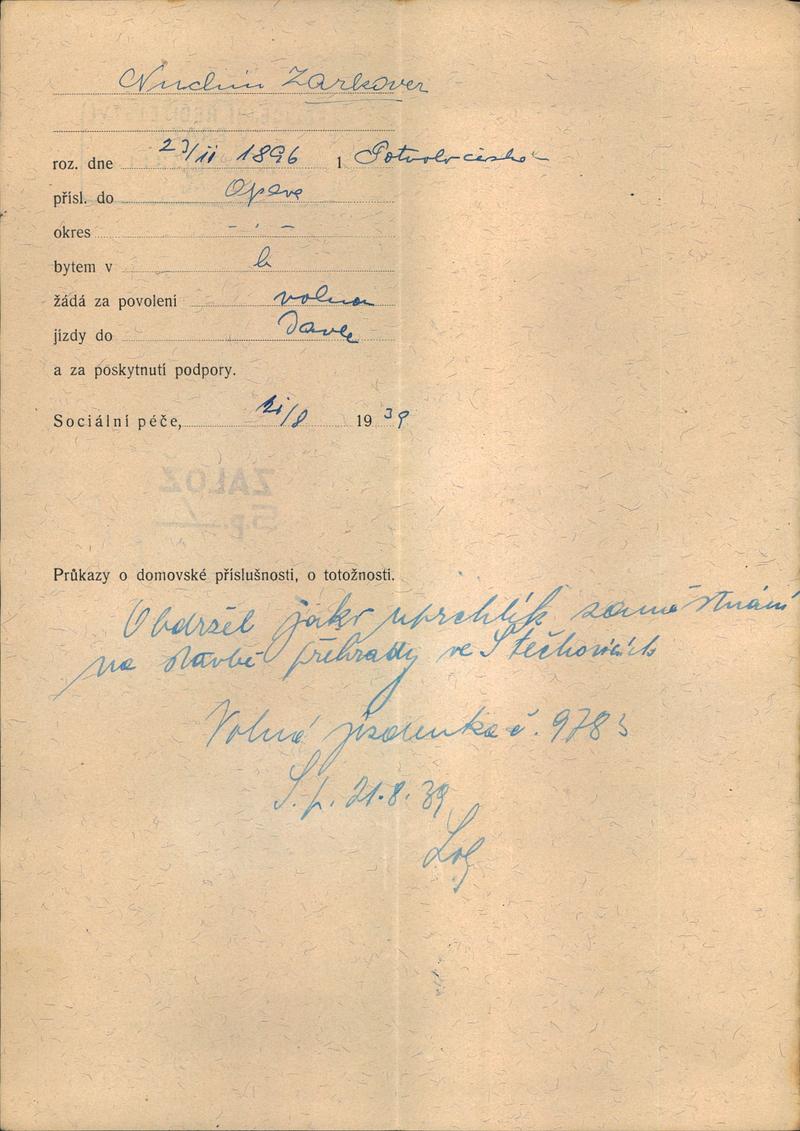 Nuchim Zarkover
roz. dne 23/II 1896 i
přísl. do Opava
okres - ' -
bytem v
žádá za povolení volna
jízdy do Davle
a za poskytnutí podpory.
Sociální péče, 21/8 1939
ZALOŽ
S.p.
Průkazy o domovské příslušnosti, o totožnosti.
Obdržel jako uprchlík zaměstnání
na stavbě přehrady ve Štěchovicích
Volná jízdenka č. 9783
S.p. 21.8.39